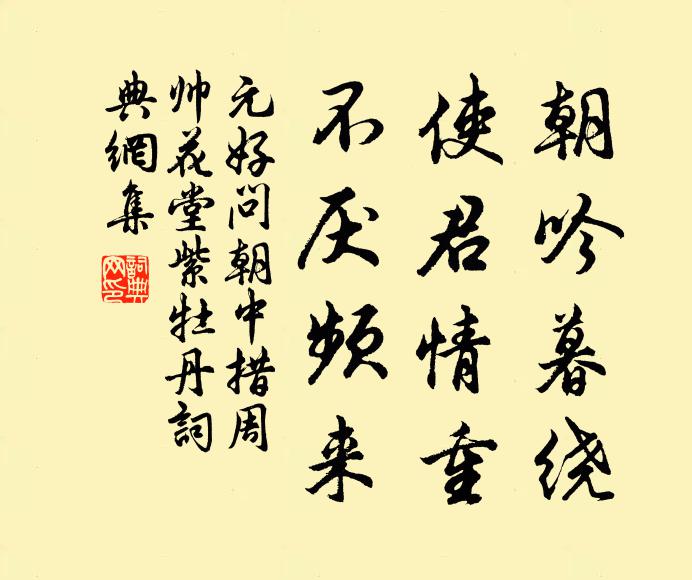 朝吟暮绕
使君情重
不厌频来
元好问朝中措周
帅花堂紫牡丹詞
典網集
詞典網印